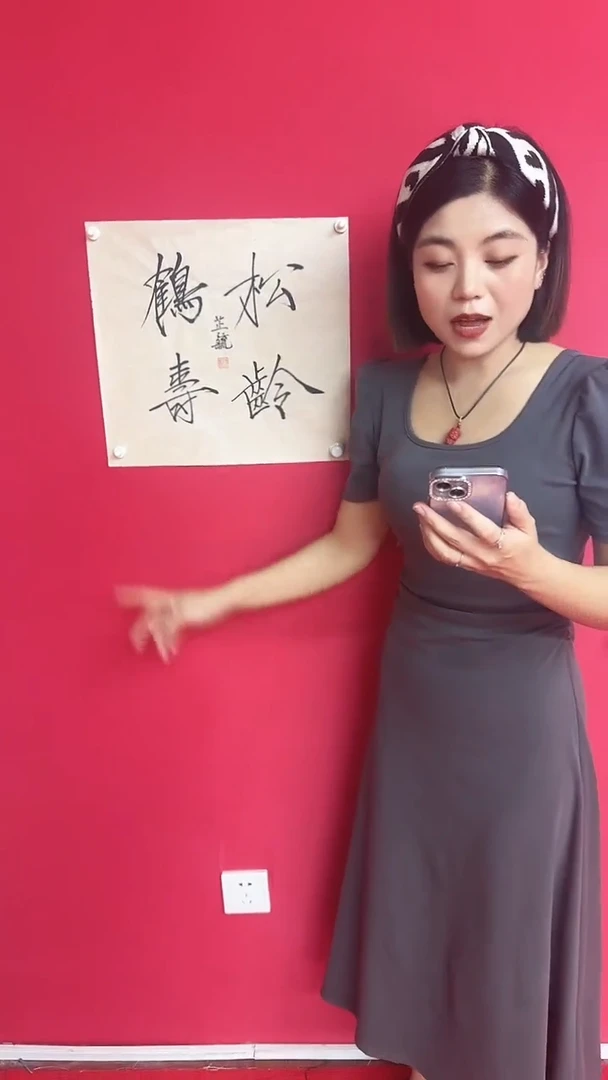 松齡
鶴壽
芷毓